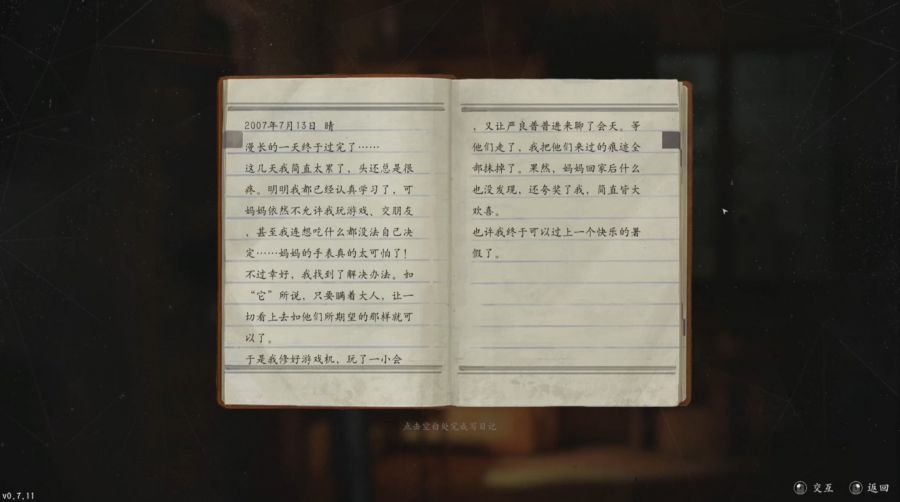 2007年7月13日 晴
漫长的一天终于过完了……
这几天我简直太累了，头还总是很
疼。明明我都已经认真学习了，可
妈妈依然不允许我玩游戏、交朋友
，甚至我连想吃什么都没法自己决
定……妈妈的手表真的太可怕了！
不过幸好，我找到了解决办法。如
“它”所说，只要瞒着大人，让一
切看上去如他们所期望的那样就可
以了。
于是我修好游戏机，玩了一小会
，又让严良普普进来聊了会天。等
他们走了，我把他们来过的痕迹全
部抹掉了。果然，妈妈回家后什么
也没发现，还夸奖了我，简直皆大
欢喜。
也许我终于可以过上一个快乐的暑
假了。
点击空白处完成写日记
v0.7.11
交互
返回